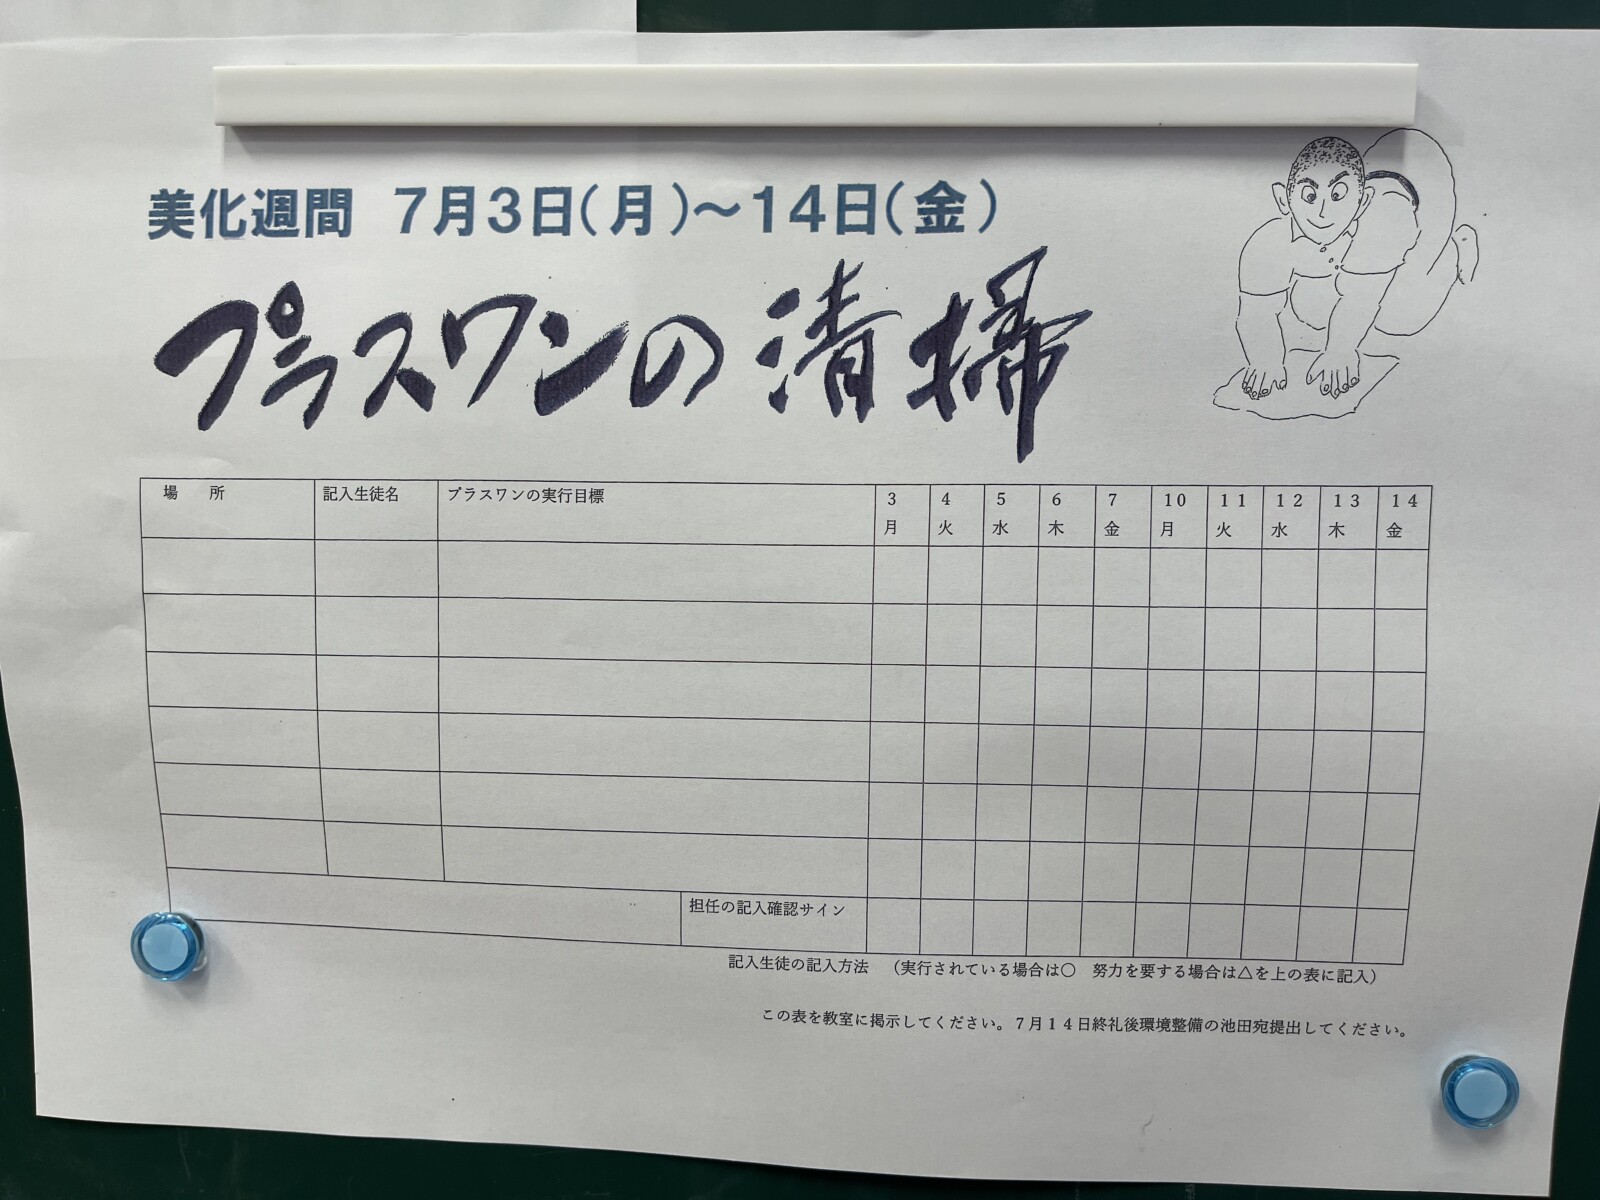 美化週間　7月3日(月)～14日(金)
プラスワンの清掃
場　所　記入生徒名　プラスワンの実行目標　3　4　5　6　7　10　11　12　13　14
月　火　水　木　金　月　火　水　木　金
担任の記入確認サイン
記入生徒の記入方法　（実行されている場合は○　努力を要する場合は△を上の表に記入）
この表を教室に掲示してください。7月14日終礼後環境整備の池田宛提出してください。